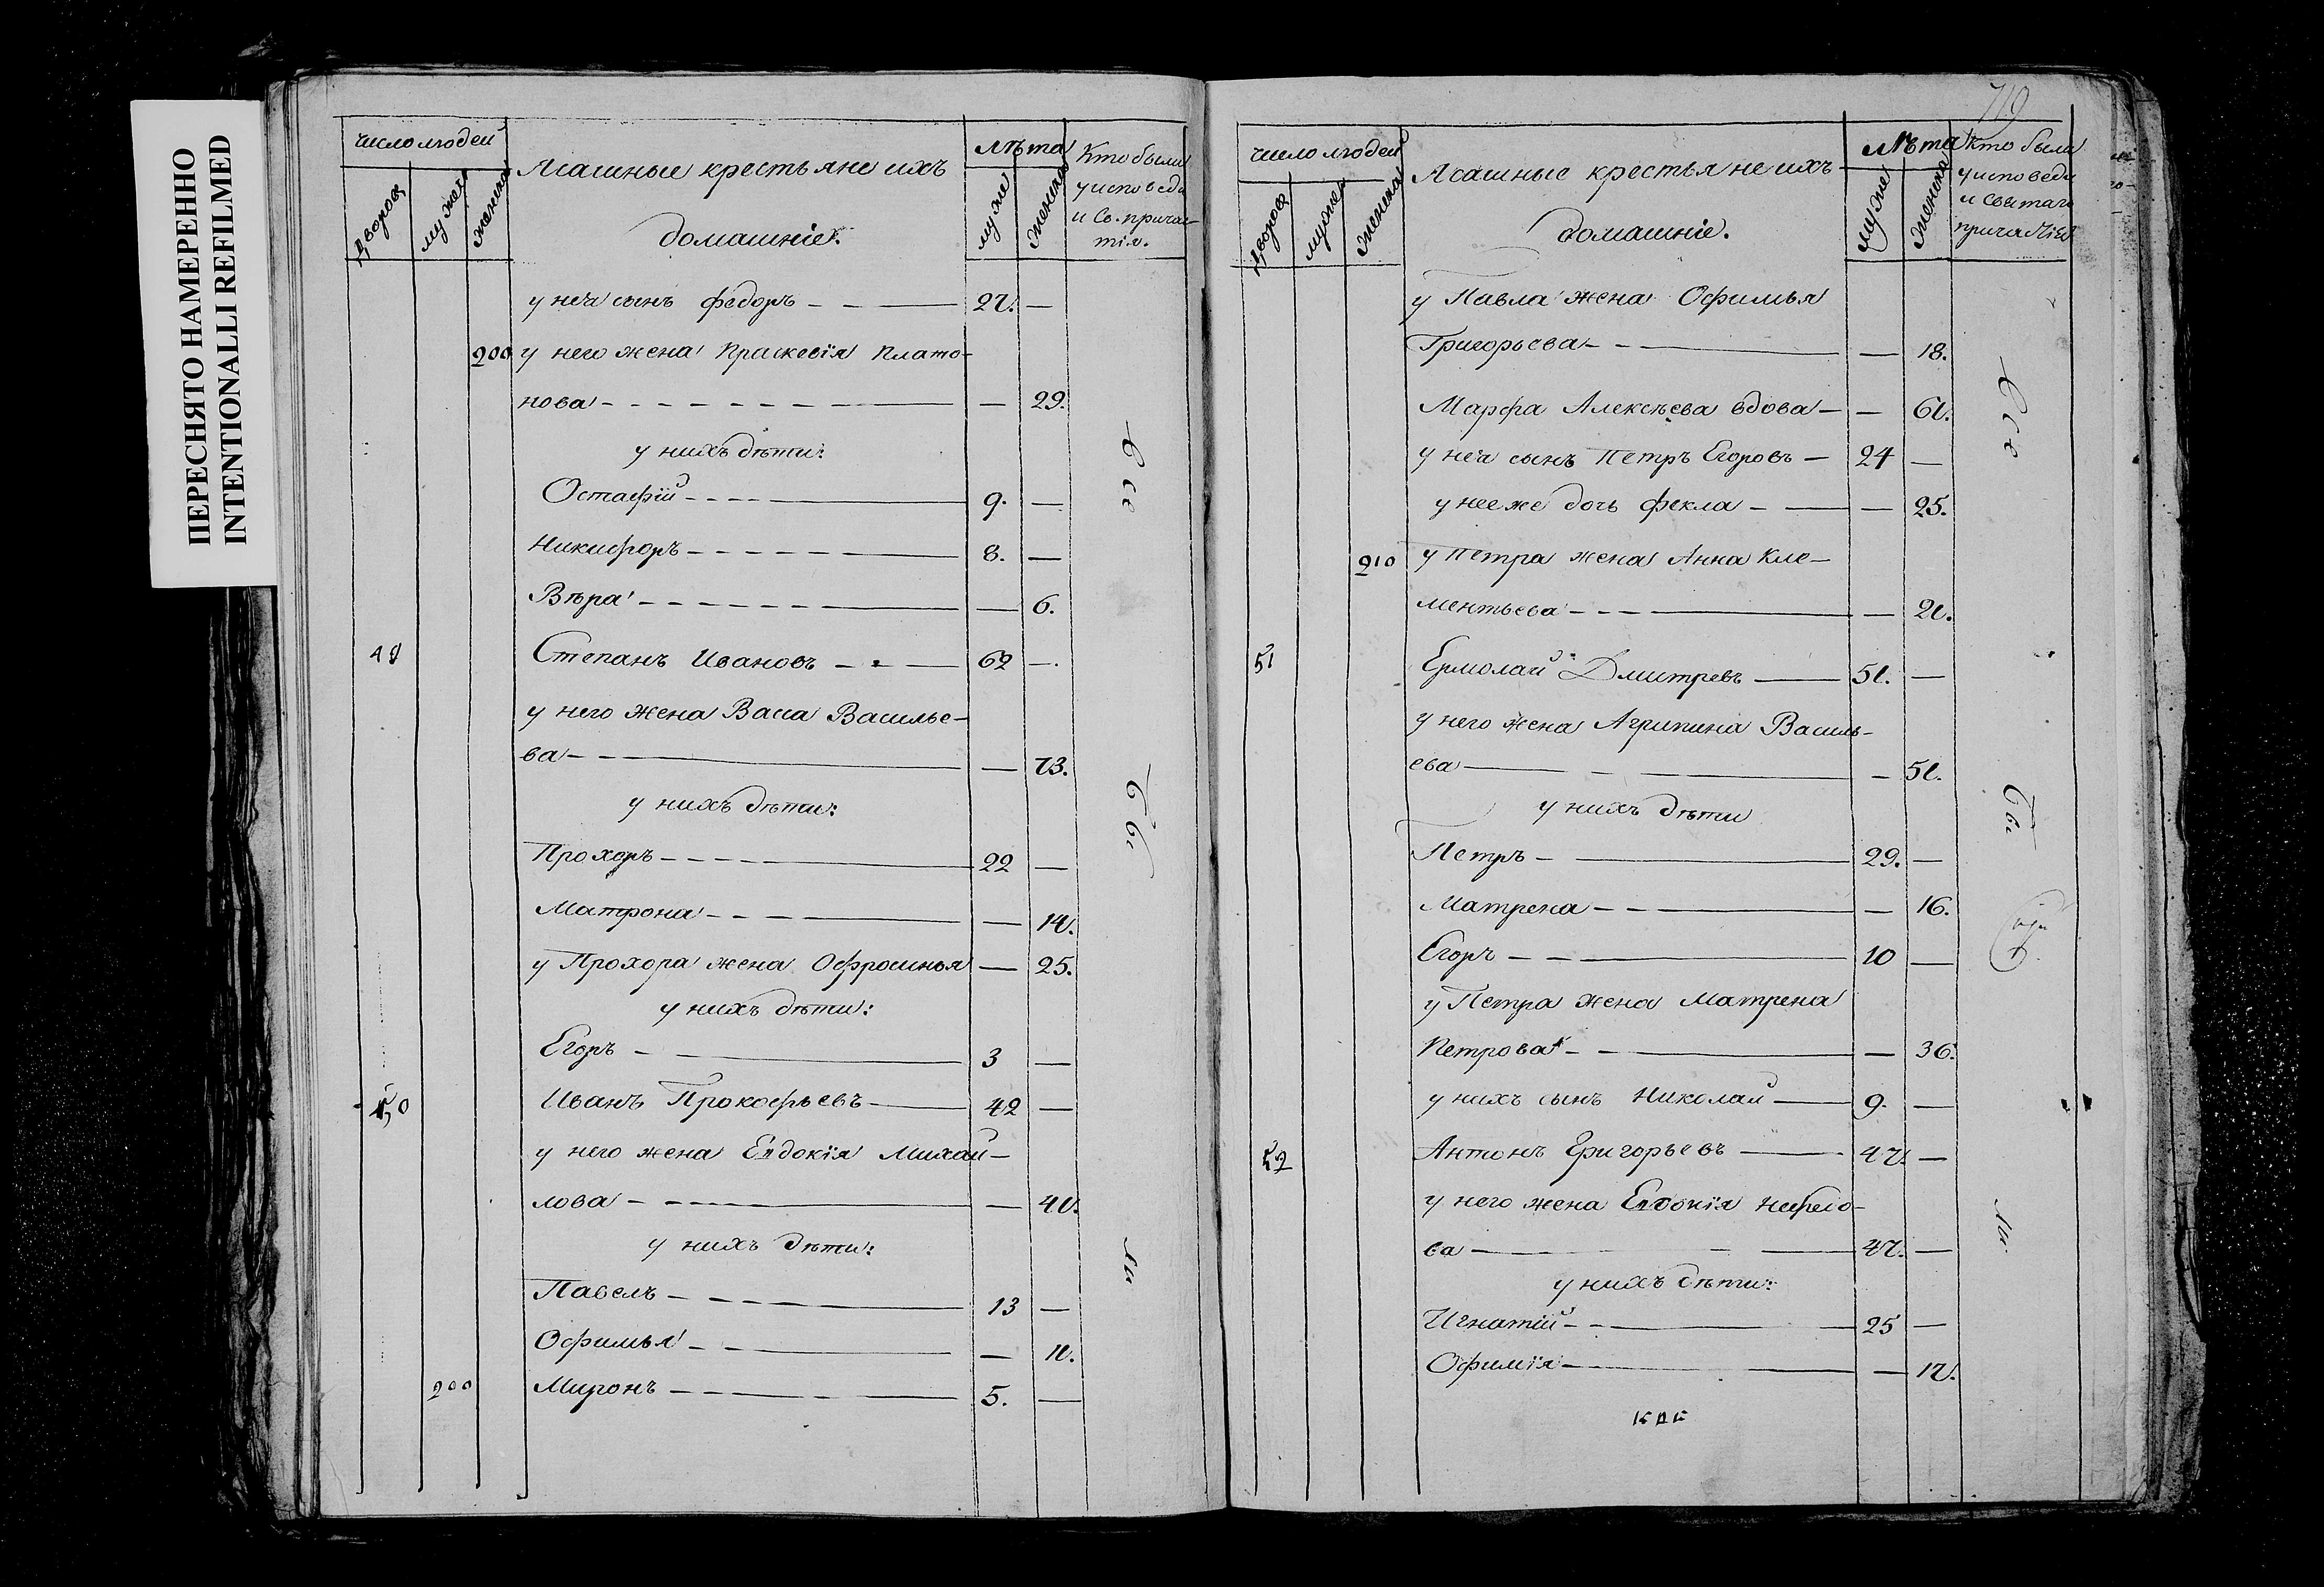 ПЕРЕСНЯТО НАМЕРЕННО
INTENTIONALLI REFILMED
число людей
дворовъ
мужеска
женска
Ясашные крестьяне ихъ
домашніе.
лѣта
муже
женска
Кто были
у исповеди
и Св. прича-
тія.
у нея сынъ Федоръ 27. —
200 у него жена Прасковія Плато-
нова — 29.
у нихъ дѣти:
Остафій 9. —
Никифоръ 8. —
Вѣра — 6.
49 Степанъ Ивановъ 62 —
у него жена Васа Василье-
ва — 73.
у нихъ дѣти:
Прохоръ 22 —
Матрона — 14.
у Прохора жена Офросинья — 25.
у нихъ дѣти:
Егоръ 3 —
50 Иванъ Прокофьевъ 42 —
у него жена Евдокія Михай-
лова — 41.
у нихъ дѣти:
Павелъ 13 —
Офимья — 11.
200 Миронъ 5. —
Все
бы
ли
719
число людей
дворовъ
муже
женска
Ясашные крестьяне ихъ
домашніе.
Лѣта
муже
женска
кто были
у исповеди
и святаго
причастія
у Павла жена Офимья
Григорьева — 18.
Марфа Алексѣева вдова — 61.
у нея сынъ Петръ Егоровъ 24 —
у нее же дочь Фекла — 25.
210 у Петра жена Анна Кле-
ментьева — 21.
51 Ермолай Дмитревъ 51. —
у него жена Агрипина Василь-
ева — 51.
у нихъ дѣти
Петръ 29. —
Матрена — 16.
Егоръ 10 —
у Петра жена Матрена
Петрова — 36.
у нихъ сынъ Николай 9. —
52 Антонъ Григорьевъ 47. —
у него жена Евдокія Нефедо-
ва 47. —
у нихъ дѣти:
Игнатій 25 —
Офимія — 17.
Все
бы
ли